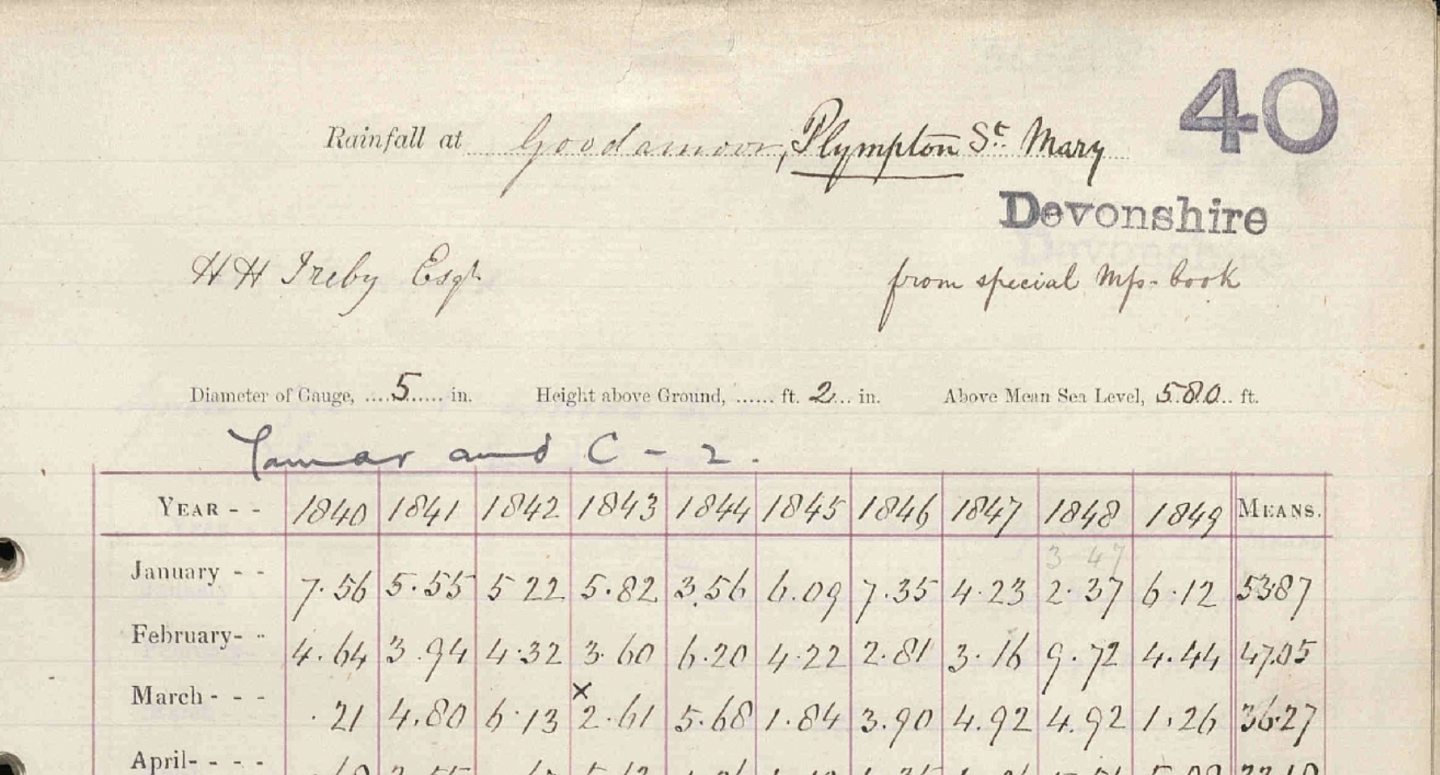 40
Rainfall at Goodamoor, Plympton St. Mary
Devonshire
H H Treby Esqr
from special Mps-book
Diameter of Gauge, ....5...... in. Height above Ground, ...... ft. 2... in. Above Mean Sea Level, 580.. ft.
Tamar and C - 2.
YEAR - - 1840 1841 1842 1843 1844 1845 1846 1847 1848 1849 MEANS.
3 47
January - - 7.56 5.55 5 22 5.82 3.56 6.09 7.35 4.23 2.37 6.12 53.87
February- - 4.64 3.94 4.32 3.60 6.20 4.22 2.81 3.16 9.72 4.44 47.05
March - - - .21 4.80 6.13 x 2.61 5.68 1.84 3.90 4.92 4.92 1.26 36.27
April- - - -